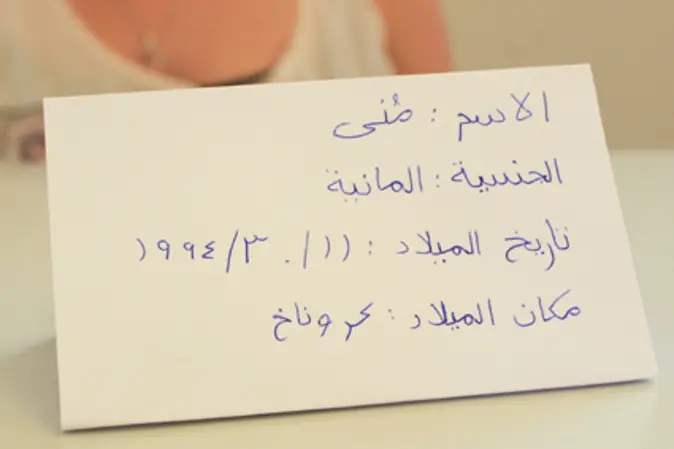 الاسم : مُنى
الجنسية : المانية
تاريخ الميلاد : ١١/٣٠/١٩٩٤
مكان الميلاد : كروناخ